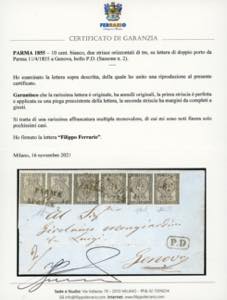 FERRARIO
CERTIFICATO DI GARANZIA
PARMA 1855 – 10 cent. bianco, due strisce orizzontali di tre, su lettera di doppio porto da
Parma 11/4/1855 a Genova, bollo P.D. (Sassone n. 2).
Ho esaminato la lettera sopra descritta, della quale ho unito una riproduzione al presente
certificato.
Garantisco che la rarissima lettera è originale, ha annulli originali, la prima striscia è perfetta
e applicata su una piega preesistente della lettera, la seconda striscia ha margini da completi a
giusti.
Si tratta di una rarissima affrancatura multipla monocolore, di cui mi sono noti finora solo
pochissimi casi.
Ho firmato la lettera "Filippo Ferrario".
Milano, 16 novembre 2021
PARMA
P.D.
Genova